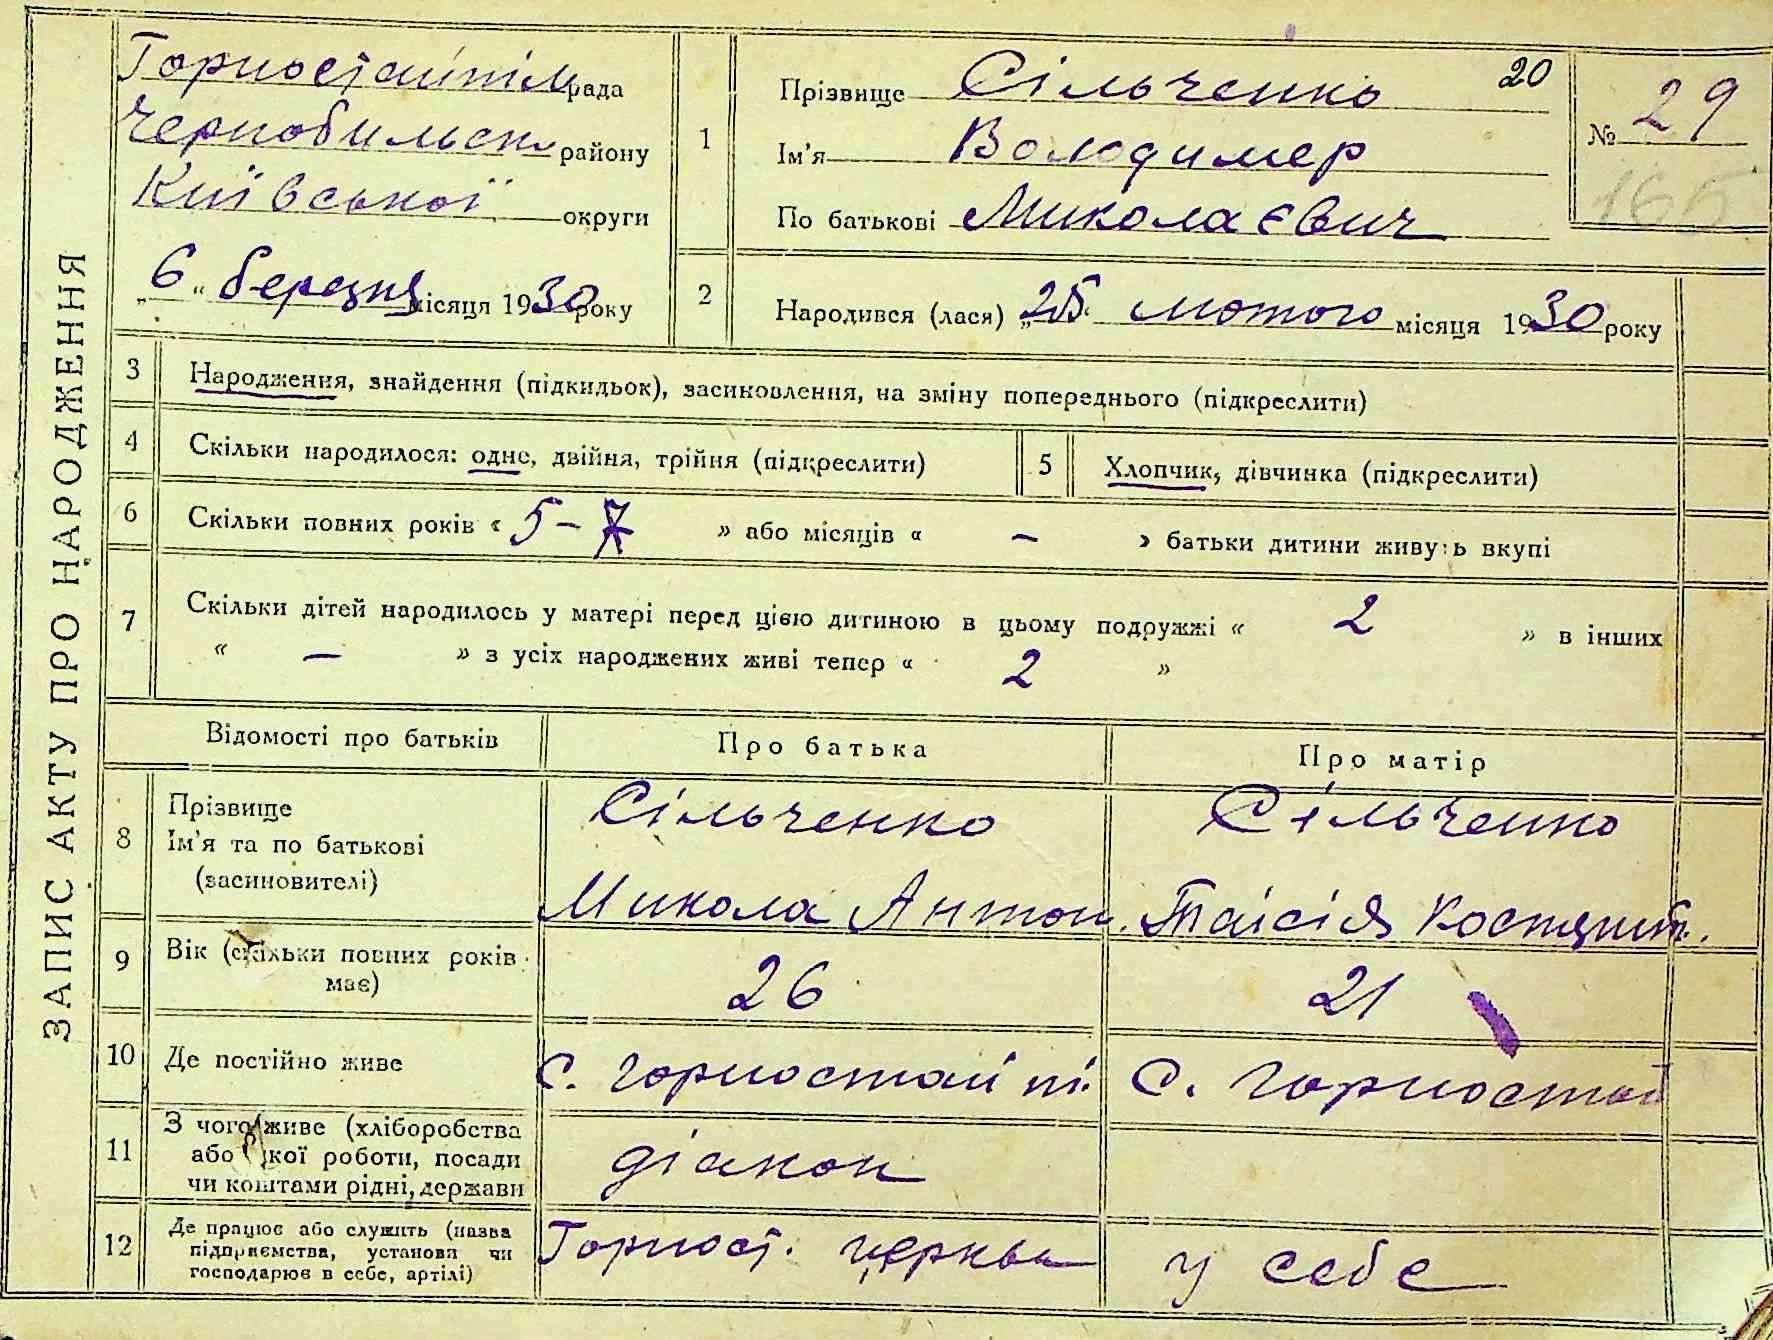 ЗАПИС АКТУ ПРО НАРОДЖЕННЯ
Горностайпіл рада
Чернобильськ району
Київської округи
„6“ березня місяця 1930 року
1
Прізвище Сільченко 20
Ім'я Володимер
По батькові Миколаєвич
№ 29
165
2
Народився (лася) „25“ лютого місяця 1930 року
3
Народження, знайдення (підкидьок), засиновлення, на зміну попереднього (підкреслити)
4
Скільки народилося: одне, двійня, трійня (підкреслити)
5
Хлопчик, дівчинка (підкреслити)
6
Скільки повних років « 5 – » або місяців « – » батьки дитини живуть вкупі
7
Скільки дітей народилось у матері перед цією дитиною в цьому подружжі « 2 » в інших
« – » з усіх народжених живі тепер « 2 »
Відомості про батьків
Про батька
Про матір
8
Прізвище
Ім'я та по батькові
(засиновителі)
Сільченко
Микола Антон.
Сільченко
Таісія Костянт.
9
Вік (скільки повних років
має)
26
21
10
Де постійно живе
с. Горностайпі.
с. Горностай
11
З чого живе (хліборобства
або якої роботи, посади
чи коштами рідні, держави
діакон
12
Де працює або служить (назва
підприємства, установи чи
господарює в себе, артілі)
Горност. церква
у себе